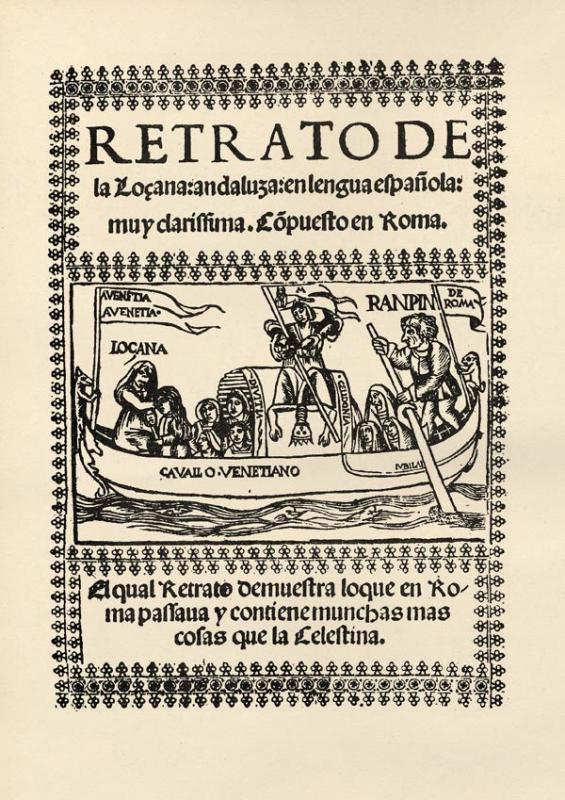 RETRATO DE
la Loçana: andaluza: en lengua española:
muy clarissima. Cõpuesto en Roma.
AVENETIA
AVENETIA.
M
RANPIN
DE
ROMA
LOÇANA
CAVALLO. VENETIANO
El qual Retrato demuestra loque en Ro-
ma passaua y contiene munchas mas
cosas que la Celestina.